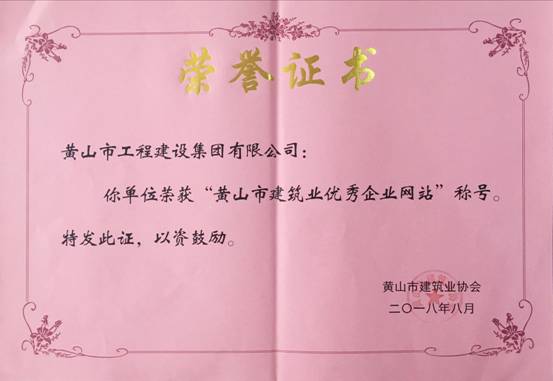 荣誉证书
黄山市工程建设集团有限公司：
你单位荣获“黄山市建筑业优秀企业网站”称号。
特发此证，以资鼓励。
黄山市建筑业协会
二〇一八年八月